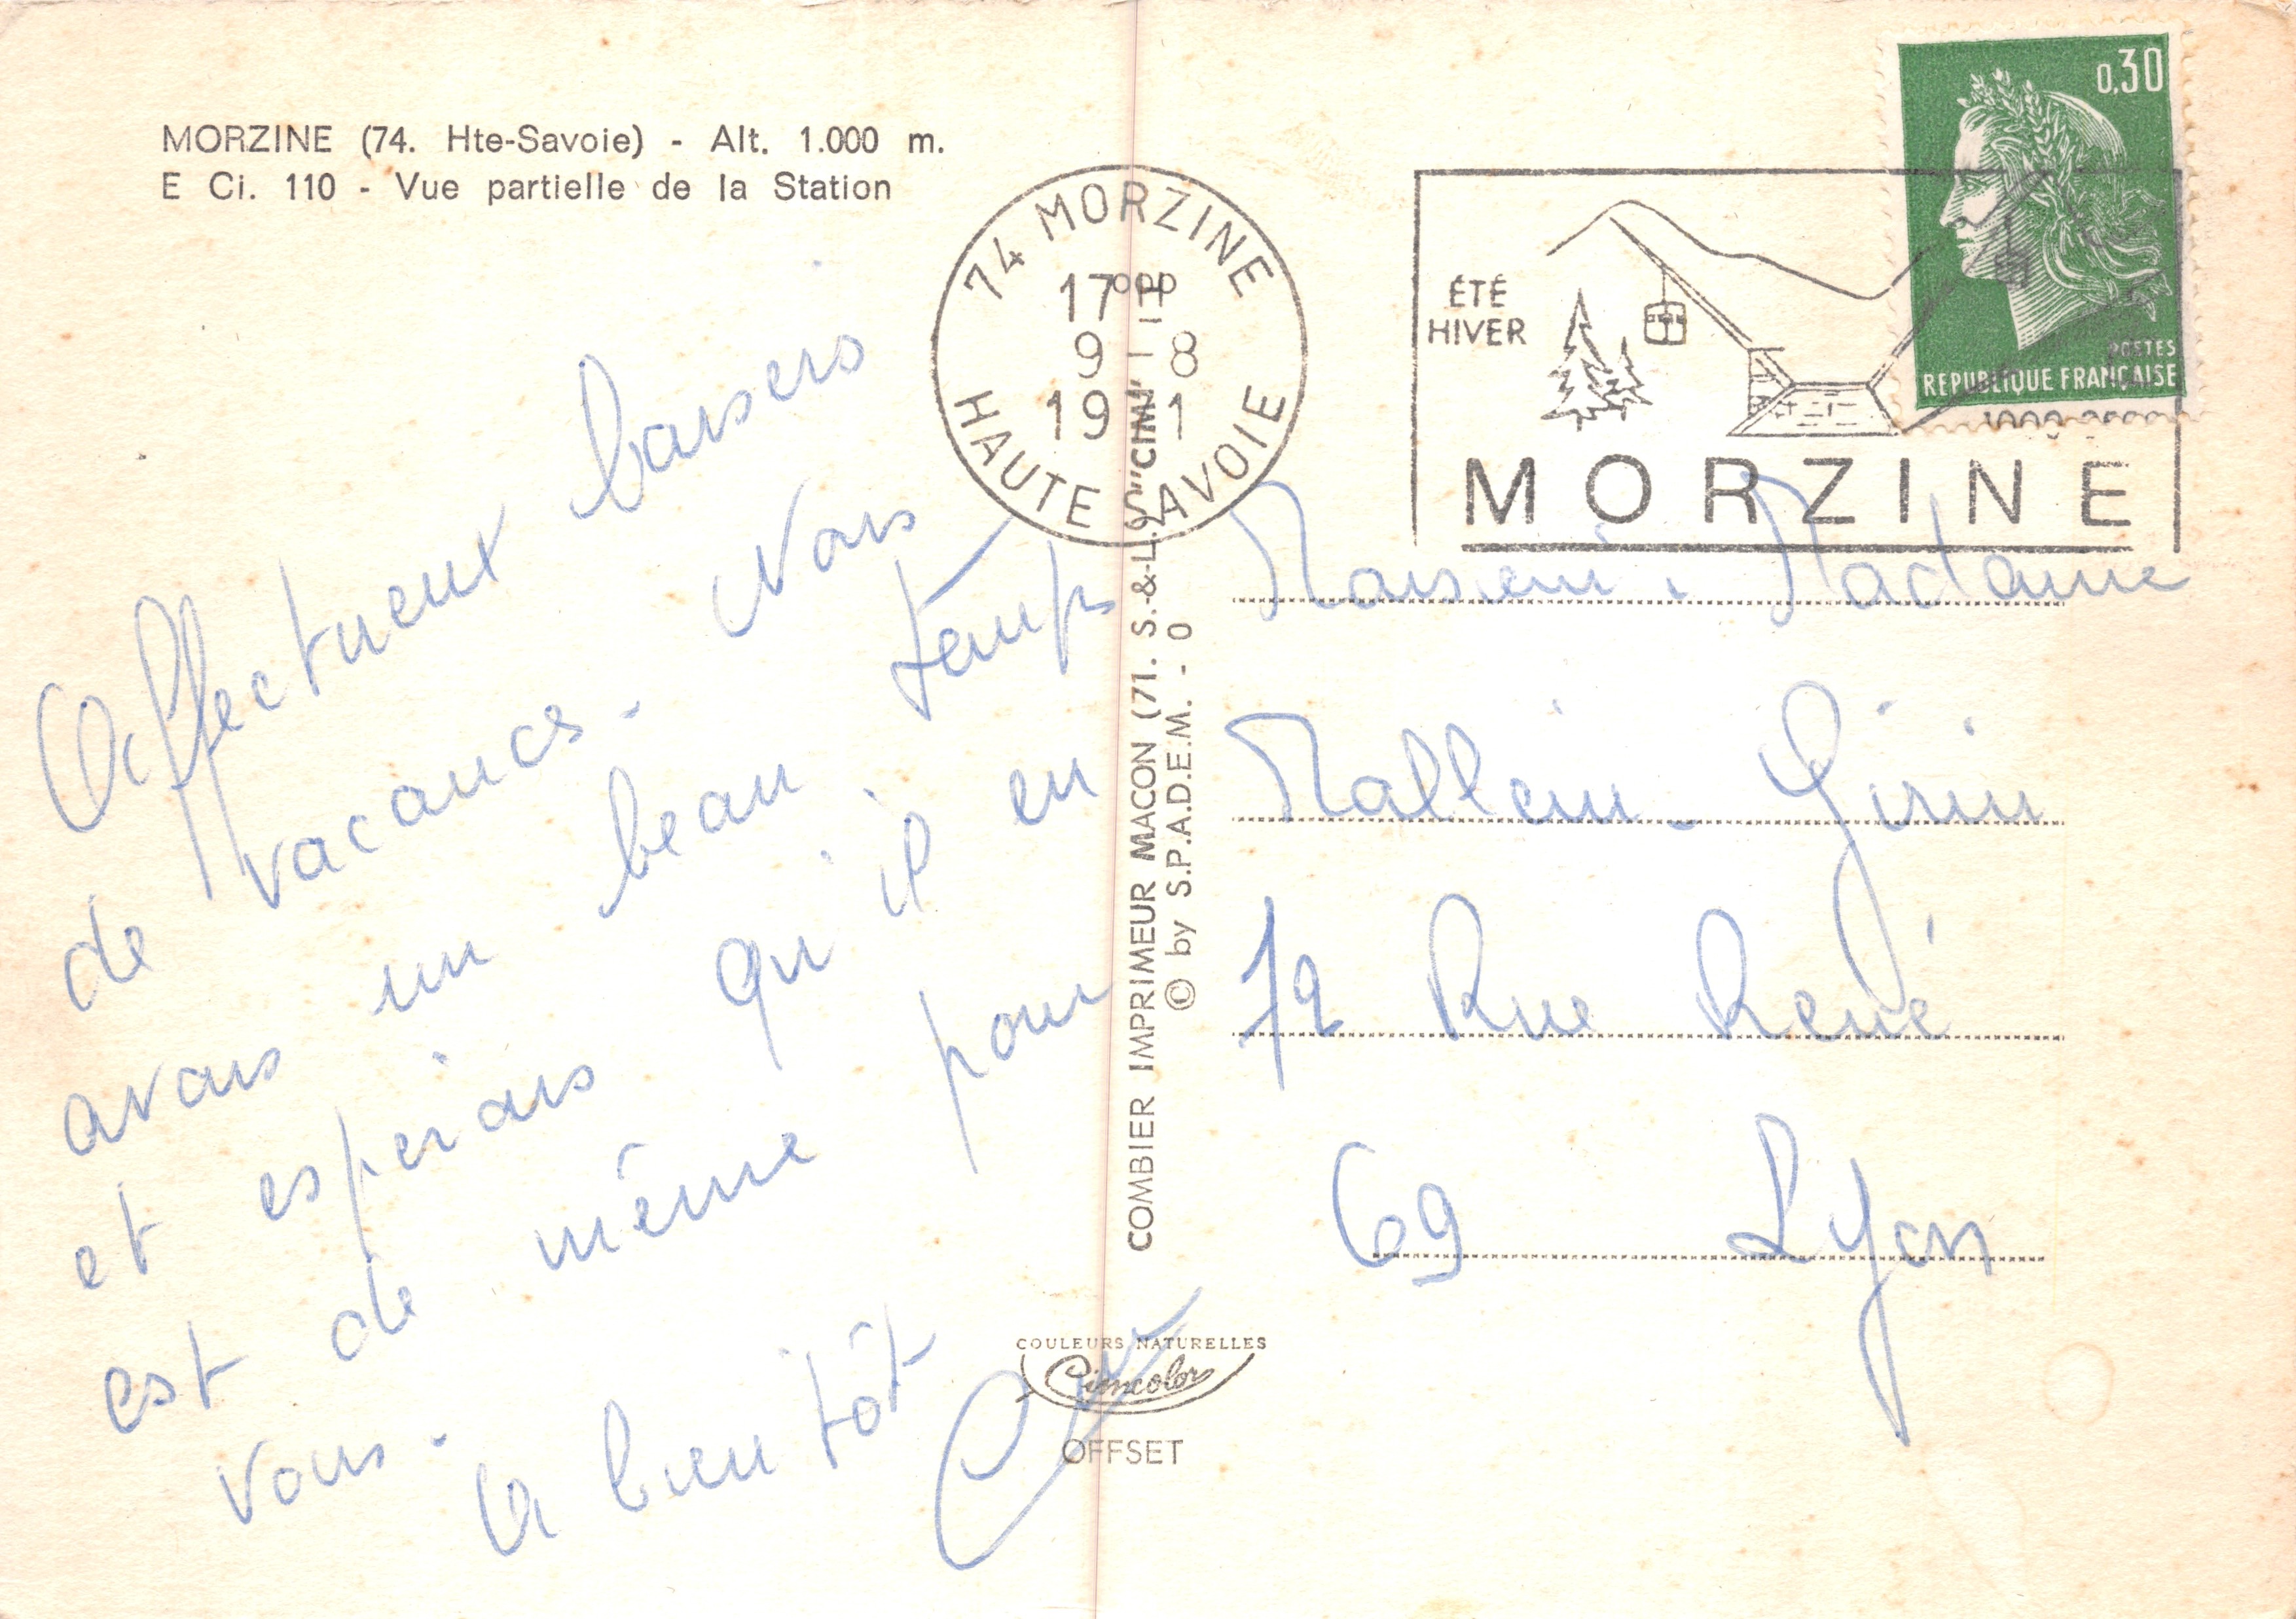 MORZINE (74. Hte-Savoie) - Alt. 1.000 m.
E Ci. 110 - Vue partielle de la Station
Affectueux baisers
de vacances. Nous
avons un beau temps
et esperons qu'il en
est de même pour
vous.
A bientôt
74 MORZINE
17 H
9 8
19 1
HAUTE SAVOIE
ÉTÉ
HIVER
MORZINE
0,30
POSTES
REPUBLIQUE FRANÇAISE
COMBIER IMPRIMEUR MACON (71. S.-&-L.) "CIM"
© by S.P.A.D.E.M. - 0
Monsieur Madame
Mallein-Girin
72 Rue René
69 Lyon
COULEURS NATURELLES
Cimcolor
OFFSET